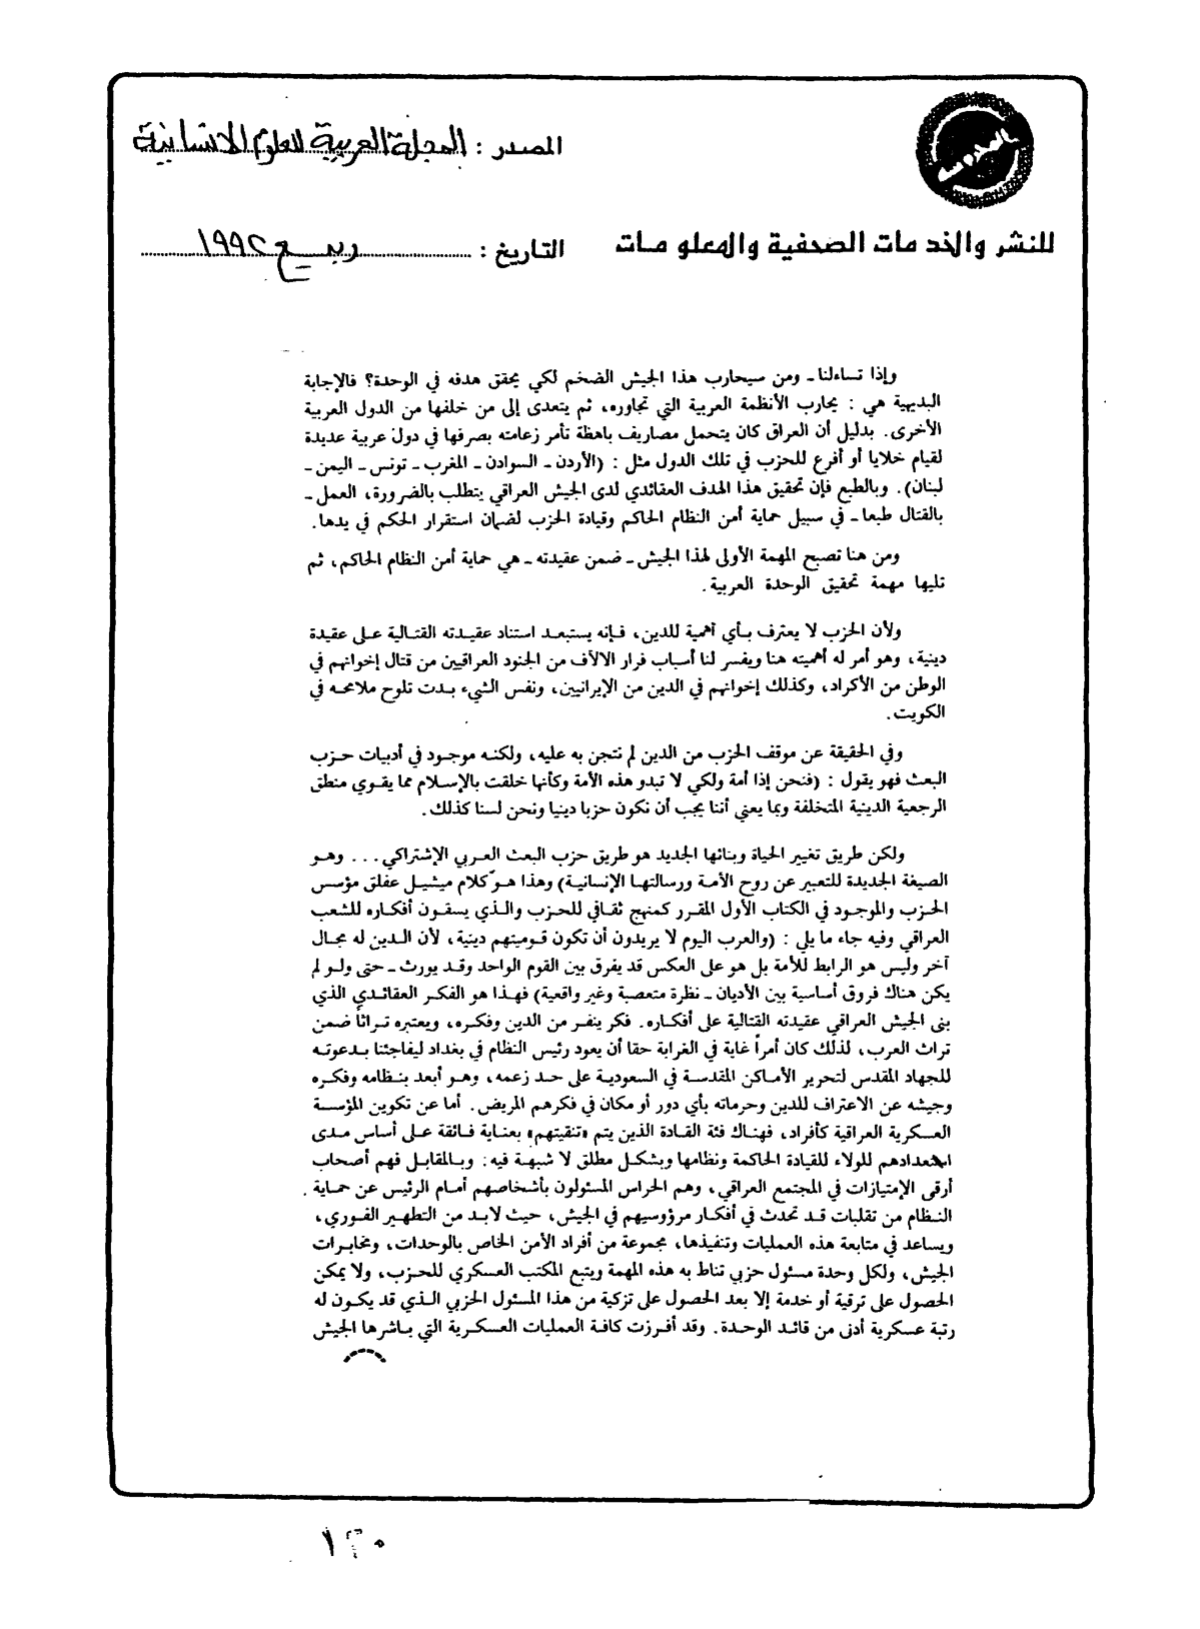 المصدر : المجلة العربية للعلوم الانسانية
للنشر والخدمات الصحفية والمعلومات
التاريخ : ربيع ١٩٩٢
وإذا تساءلنا ـ ومن سيحارب هذا الجيش الضخم لكي يحقق هدفه في الوحدة؟ فالإجابة
البديهية هي : يحارب الأنظمة العربية التي تجاوره، ثم يتعدى إلى من خلفها من الدول العربية
الأخرى. بدليل أن العراق كان يتحمل مصاريف باهظة تأمر زعامته بصرفها في دول عربية عديدة
لقيام خلايا أو أفرع للحزب في تلك الدول مثل : (الأردن ـ السوادن ـ المغرب ـ تونس ـ اليمن ـ
لبنان). وبالطبع فإن تحقيق هذا الهدف العقائدي لدى الجيش العراقي يتطلب بالضرورة، العمل ـ
بالقتال طبعا ـ في سبيل حماية أمن النظام الحاكم وقيادة الحزب لضمان استقرار الحكم في يدها.
ومن هنا تصبح المهمة الأولى لهذا الجيش ـ ضمن عقيدته ـ هي حماية أمن النظام الحاكم، ثم
تليها مهمة تحقيق الوحدة العربية.
ولأن الحزب لا يعترف بـأي أهمية للدين، فـإنه يستبعـد استناد عقيـدته القتـالية عـلى عقيدة
دينية، وهو أمر له أهميته هنا ويفسر لنا أسباب فرار الالاف من الجنود العراقيين من قتال إخوانهم في
الوطن من الأكراد، وكذلك إخوانهم في الدين من الإيرانيين، ونفس الشيء بـدت تلوح ملامحـه في
الكويت.
وفي الحقيقة عن موقف الحزب من الدين لم نتجن به عليه، ولكنـه موجـود في أدبيات حـزب
البعث فهو يقول : (فنحن إذا أمة ولكي لا تبدو هذه الأمة وكأنها خلقت بالإسـلام مما يقـوي منطق
الرجعية الدينية المتخلفة وبما يعني أننا يجب أن نكون حزبا دينيا ونحن لسنا كذلك.
ولكن طريق تغيير الحياة وبنائها الجديد هو طريق حزب البعث العـربي الإشتراكي... وهـو
الصيغة الجديدة للتعبير عن روح الأمـة ورسالتهـا الإنسانيـة) وهذا هـو كلام ميشيـل عفلق مؤسس
الحـزب والموجـود في الكتاب الأول المقـرر كمنهج ثقـافي للحـزب والـذي يسقـون أفكـاره للشعب
العراقي وفيه جاء ما يلي : (والعرب اليوم لا يريدون أن تكون قـوميتهم دينية، لأن الـدين له مجـال
آخر وليس هو الرابط للأمة بل هو على العكس قد يفرق بين القوم الواحد وقـد يورث ـ حتى ولـو لم
يكن هناك فروق أساسية بين الأديان ـ نظرة متعصبة وغير واقعية) فهـذا هو الفكـر العقائـدي الذي
بنى الجيش العراقي عقيدته القتالية على أفكـاره. فكر ينفـر من الدين وفكـره، ويعتبره تـراثاً ضمن
تراث العرب، لذلك كان أمراً غاية في الغرابة حقا أن يعود رئيس النظام في بغداد ليفاجئنا بـدعوتـه
للجهاد المقدس لتحرير الأمـاكن المقدسـة في السعوديـة على حـد زعمه، وهـو أبعد بنـظامه وفكـره
وجيشه عن الاعتراف للدين وحرماته بأي دور أو مكان في فكرهم المريض. أما عن تكوين المؤسسة
العسكرية العراقية كأفراد، فهنـاك فئة القـادة الذين يتم «تنقيتهم» بعنايـة فـائقة عـلى أساس مـدى
استعدادهم للولاء للقيادة الحاكمة ونظامها وبشكـل مطلق لا شبهـة فيه : وبـالمقابل فهم أصحاب
أرقى الإمتيازات في المجتمع العراقي، وهم الحراس المسئولون بأشخاصهم أمـام الرئيس عن حمـاية
النظام من تقلبات قـد تحدث في أفكـار مرؤوسيهم في الجيش، حيث لابـد من التطهـير الفـوري،
ويساعد في متابعة هذه العمليات وتنفيذها، مجموعة من أفراد الأمن الخاص بالوحدات، ومخابـرات
الجيش، ولكل وحدة مسئول حزبي تناط به هذه المهمة ويتبع المكتب العسكري للحـزب، ولا يمكن
الحصول على ترقية أو خدمة إلا بعد الحصول على تزكية من هذا المسئول الحزبي الـذي قد يكـون له
رتبة عسكرية أدنى من قائد الوحـدة. وقد أفـرزت كافـة العمليات العسكـرية التي بـاشرها الجيش